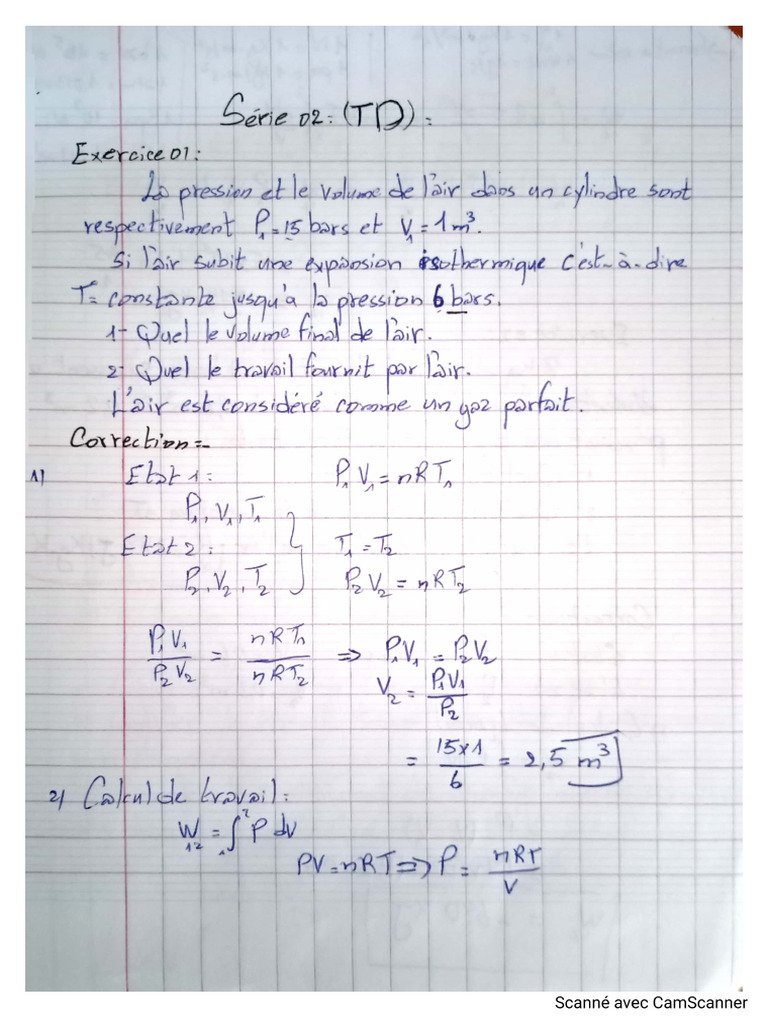 Série 02: (TD):
Exercice 01:
La pression et le volume de l'air dans un cylindre sont
respectivement P₁=15 bars et V₁=1m³.
Si l'air subit une expansion isothermique c'est-à-dire
T=constante jusqu'à la pression 6 bars.
1- Quel le volume final de l'air.
2- Quel le travail fournit par l'air.
L'air est considéré comme un gaz parfait.
Correction:-
1) Etat 1: P₁V₁ = nRT₁
P₁, V₁, T₁
Etat 2: T₁ = T₂
P₂, V₂, T₂ } P₂V₂ = nRT₂
P₁V₁/P₂V₂ = nRT₁/nRT₂ ⇒ P₁V₁ = P₂V₂
V₂ = P₁V₁/P₂
= 15×1/6 = 2,5 m³
2) Calcul de travail:
W₁₂ = ∫₁² P dV
PV=nRT ⇒ P = nRT/V
Scanné avec CamScanner